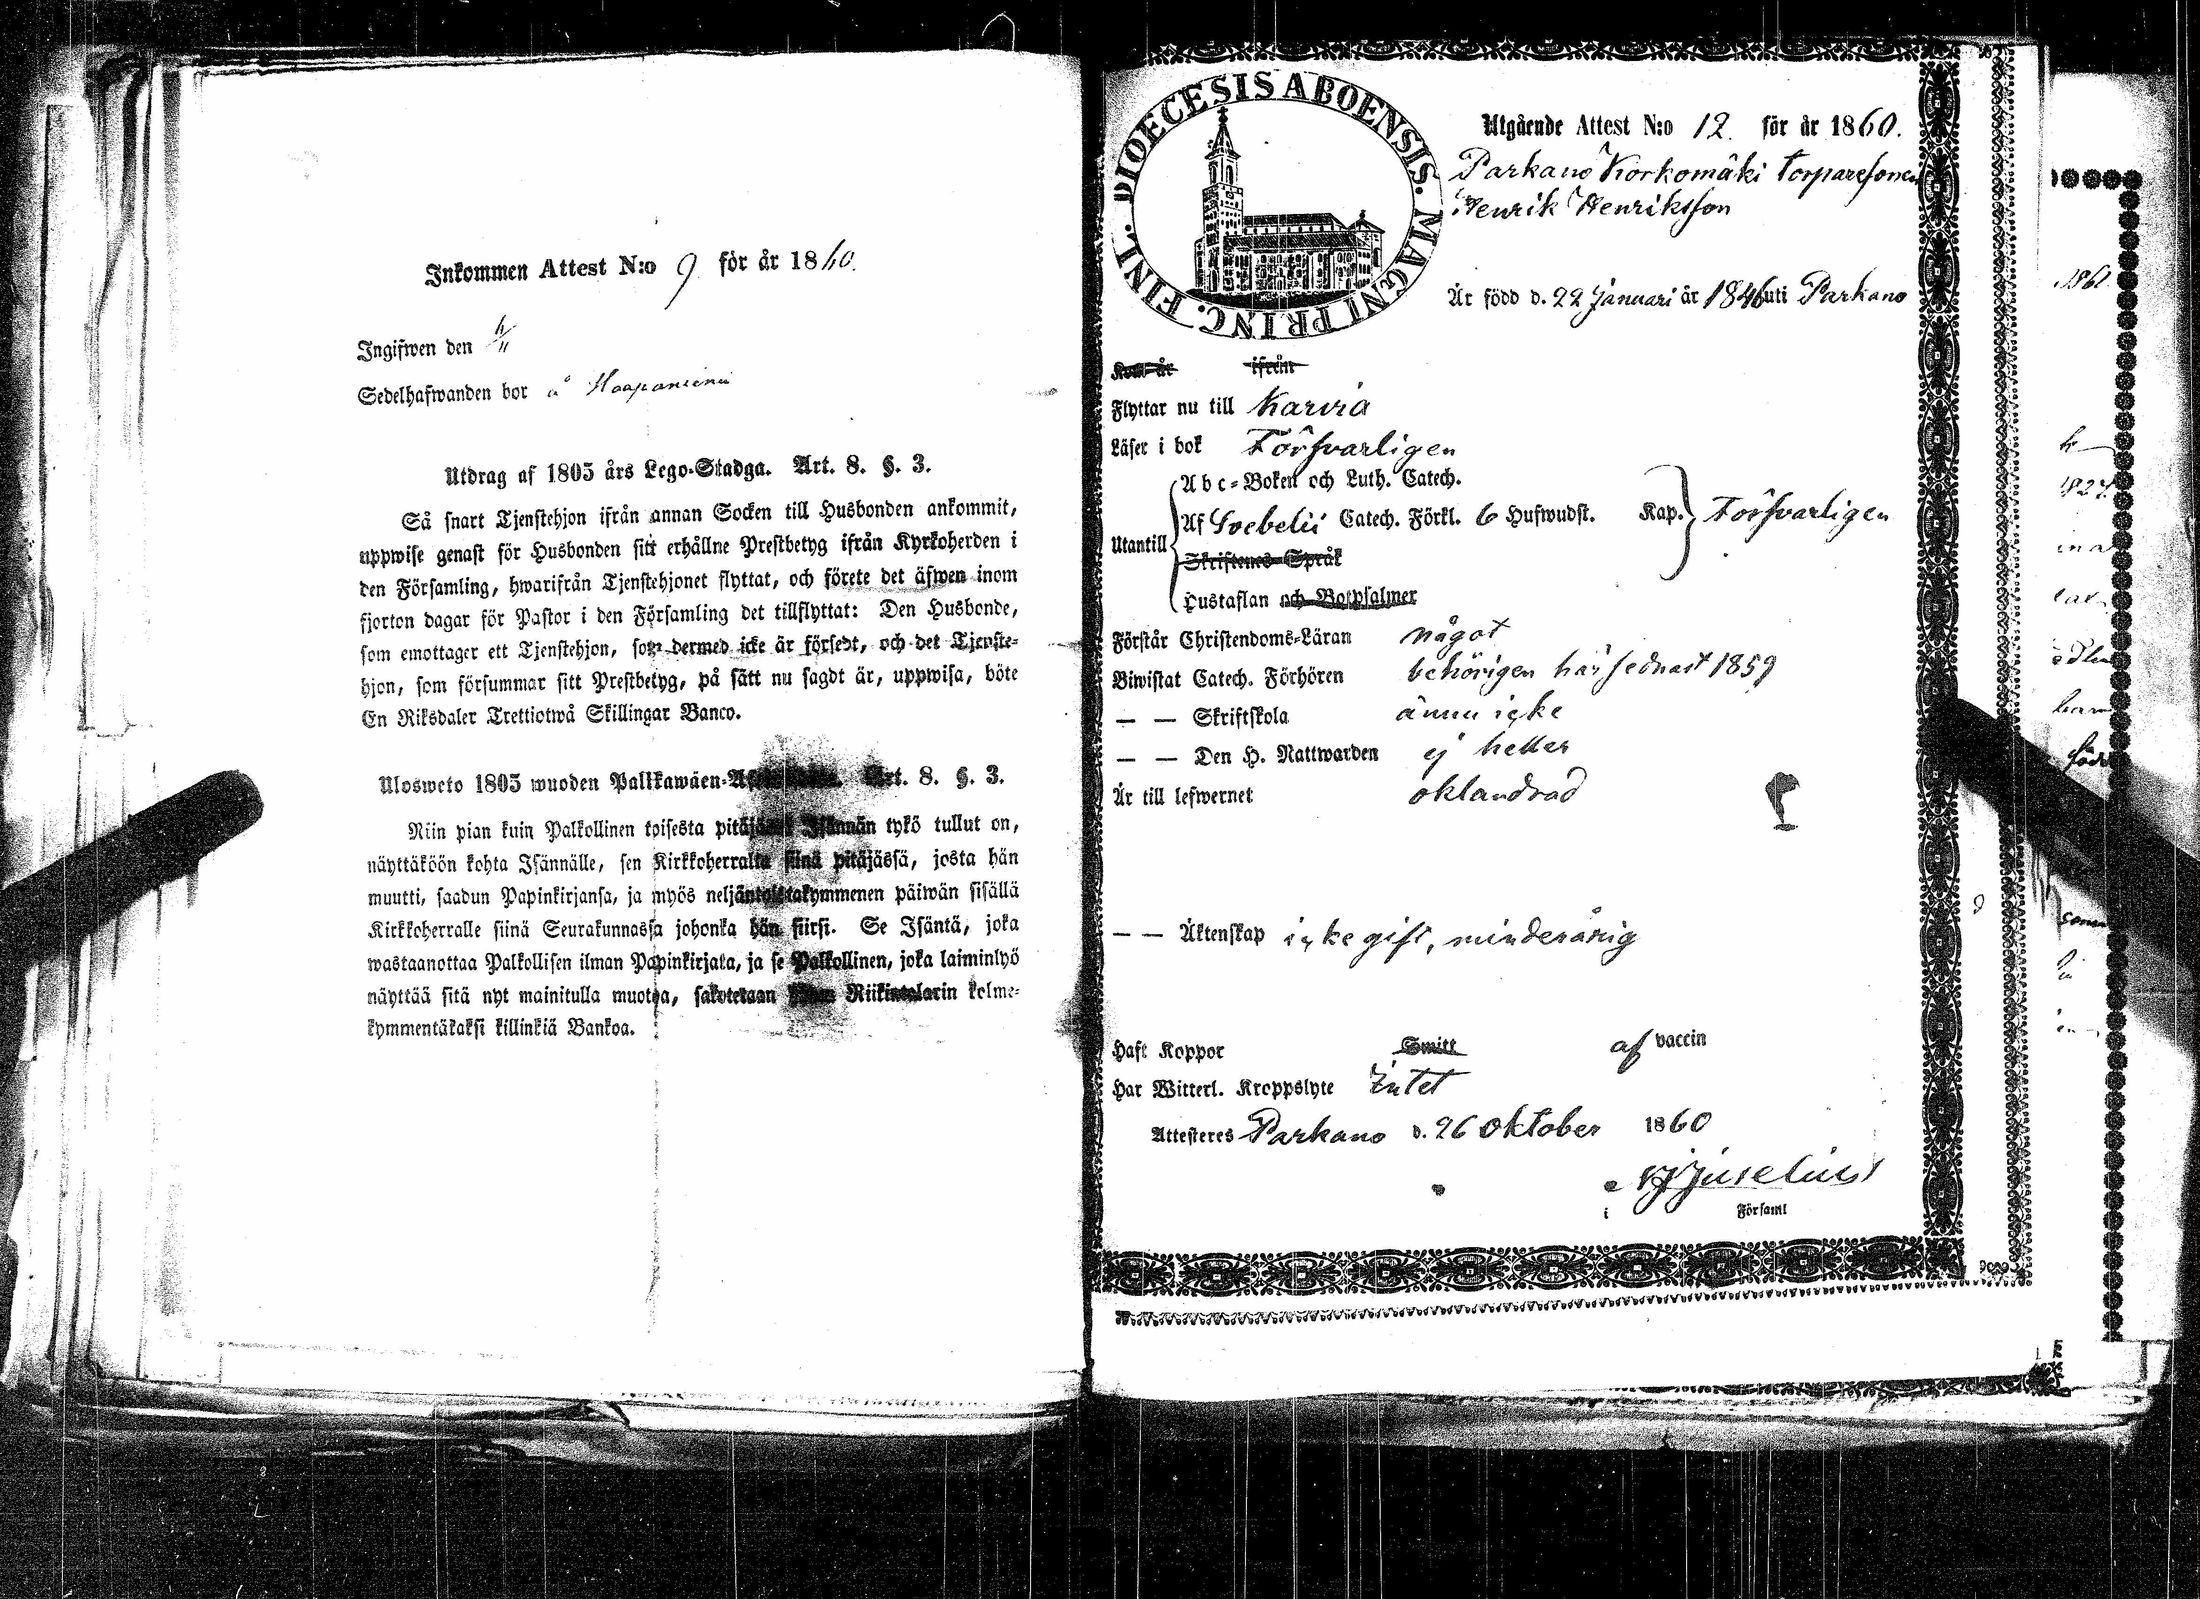 Inkommen Attest N:o 9 för år 1860.
Ingifwen den 4/11
Sedelhafwanden bor å
Utdrag af 1805 års Lego-Stadga. Art. 8. §. 3.
Så snart Tjenstehjon ifrån annan Socken till Husbonden ankommit,
uppwise genast för Husbonden sitt erhållne Prestbetyg ifrån Kyrkoherden i
den Församling, hwarifrån Tjenstehjonet flyttat, och förete det äfwen inom
fjorton dagar för Pastor i den Församling det tillflyttat: Den Husbonde,
som emottager ett Tjenstehjon, som dermed icke är försedt, och det Tjenste-
hjon, som försummar sitt Prestbetyg, på sätt nu sagdt är, uppwisa, böte
En Riksdaler Trettiotwå Skillingar Banco.
Ulosweto 1805 wuoden Palkkawäen- Art. 8. §. 3.
Niin pian kuin Palkollinen toisesta pitäjästä Isännän tykö tullut on,
näyttäköön kohta Isännälle, sen Kirkkoherralta siinä pitäjässä, josta hän
muutti, saadun Papinkirjansa, ja myös neljäntoistakymmenen päiwän sisällä
Kirkkoherralle siinä Seurakunnassa johonka hän siirsi. Se Isäntä, joka
wastaanottaa Palkollisen ilman Papinkirjata, ja se Palkollinen, joka laiminlyö
näyttää sitä nyt mainitulla muotoa, sakotetaan Riikintalarin kolme-
kymmentäkaksi killinkiä Bankoa.
DIOECESIS ABOENSIS. MAGNI PRINC. FINL.
Utgående Attest N:o 12 för år 1860.
Parkano Korkomäki torparesonen
Henrik Henriksson
Är född d. 22 Januari år 1846 uti Parkano
Kom år ifrån
Flyttar nu till Karvia
Läser i bok Försvarligen
Utantill
Abc-Boken och Luth. Catech.
Af Svebelii Catech. Förkl. 6 Hufwudst. Kap. Försvarligen
Skriftenes Språk
Hustaflan och Botpsalmer
Förstår Christendoms-Läran något
Biwistat Catech. Förhören behörigen här sednast 1859
— — Skriftskola ännu icke
— — Den H. Nattwarden ej heller
Är till lefwernet oklandrad
— — Äktenskap icke gift, minderårig
Haft Koppor Smitt af vaccin
Har Witterl. Kroppslyte Intet
Attesteres Parkano d. 26 Oktober 1860
Juselius
i Församl